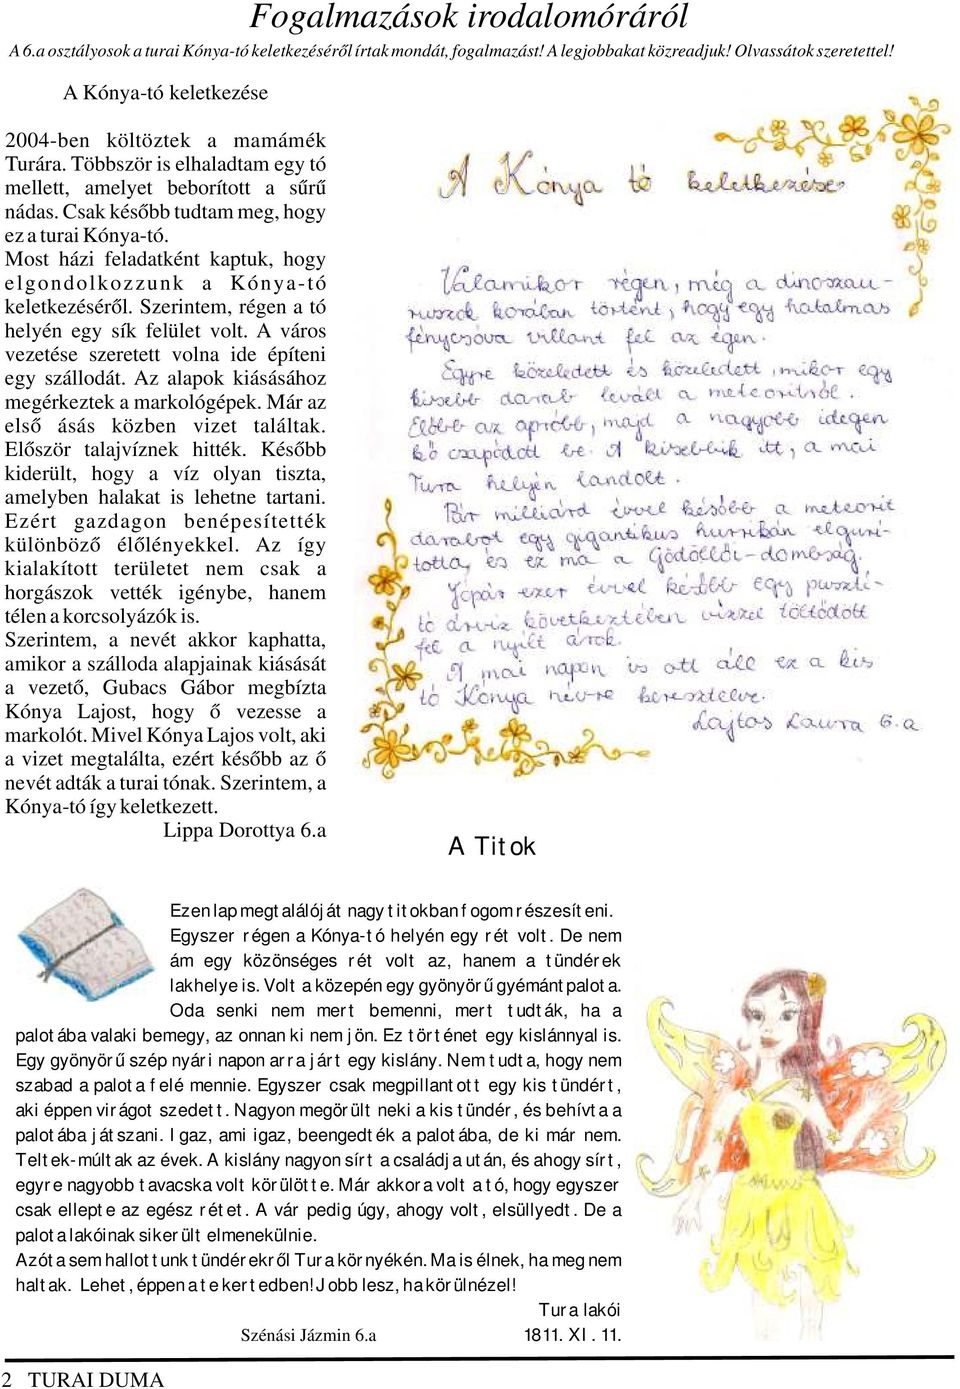 Fogalmazások irodalomóráról
A 6.a osztályosok a turai Kónya-tó keletkezéséről írtak mondát, fogalmazást! A legjobbakat közreadjuk! Olvassátok szeretettel!
A Kónya-tó keletkezése
2004-ben költöztek a mamámék
Turára. Többször is elhaladtam egy tó
mellett, amelyet beborított a sűrű
nádas. Csak később tudtam meg, hogy
ez a turai Kónya-tó.
Most házi feladatként kaptuk, hogy
elgondolkozzunk a Kónya-tó
keletkezéséről. Szerintem, régen a tó
helyén egy sík felület volt. A város
vezetése szeretett volna ide építeni
egy szállodát. Az alapok kiásásához
megérkeztek a markológépek. Már az
első ásás közben vizet találtak.
Először talajvíznek hitték. Később
kiderült, hogy a víz olyan tiszta,
amelyben halakat is lehetne tartani.
Ezért gazdagon benépesítették
különböző élőlényekkel. Az így
kialakított területet nem csak a
horgászok vették igénybe, hanem
télen a korcsolyázók is.
Szerintem, a nevét akkor kaphatta,
amikor a szálloda alapjainak kiásását
a vezető, Gubacs Gábor megbízta
Kónya Lajost, hogy ő vezesse a
markolót. Mivel Kónya Lajos volt, aki
a vizet megtalálta, ezért később az ő
nevét adták a turai tónak. Szerintem, a
Kónya-tó így keletkezett.
Lippa Dorottya 6.a
A Kónya tó keletkezése
Valamikor régen, még a dinoszau-
ruszok korában történt, hogy egy hatalmas
fénycsóva villant fel az égen.
Egyre közeledett és közeledett, mikor egy
kisebb darab levált a meteoritról.
Előbb az apróbb, majd a nagyobb idegen
kő csapódott be. A kisebbik itt, a mai
Tura helyén landolt.
Pár milliárd évvel később a meteorit
darabot egy gigantikus hurrikán elgurí-
totta, és ez ma a Gödöllői-dombság.
Jópár ezer évvel később egy pusztí-
tó árvíz következtében vízzel töltődött
fel a nyílt árok.
A mai napon is ott áll ez a kis
tó Kónya névre keresztelve.
Lajtos Laura 6.a
A Titok
Ezen lap megtalálóját nagy titokban fogom részesíteni.
Egyszer régen a Kónya-tó helyén egy rét volt. De nem
ám egy közönséges rét volt az, hanem a tündérek
lakhelye is. Volt a közepén egy gyönyörű gyémántpalota.
Oda senki nem mert bemenni, mert tudták, ha a
palotába valaki bemegy, az onnan ki nem jön. Ez történet egy kislánnyal is.
Egy gyönyörű szép nyári napon arra járt egy kislány. Nem tudta, hogy nem
szabad a palota felé mennie. Egyszer csak megpillantott egy kis tündért,
aki éppen virágot szedett. Nagyon megörült neki a kis tündér, és behívta a
palotába játszani. Igaz, ami igaz, beengedték a palotába, de ki már nem.
Teltek-múltak az évek. A kislány nagyon sírt a családja után, és ahogy sírt,
egyre nagyobb tavacska volt körülötte. Már akkora volt a tó, hogy egyszer
csak ellepte az egész rétet. A vár pedig úgy, ahogy volt, elsüllyedt. De a
palota lakóinak sikerült elmenekülnie.
Azóta sem hallottunk tündérekről Tura környékén. Ma is élnek, ha meg nem
haltak. Lehet, éppen a te kertedben! Jobb lesz, ha körülnézel!
Tura lakói
Szénási Jázmin 6.a 1811. XI. 11.
2 TURAI DUMA